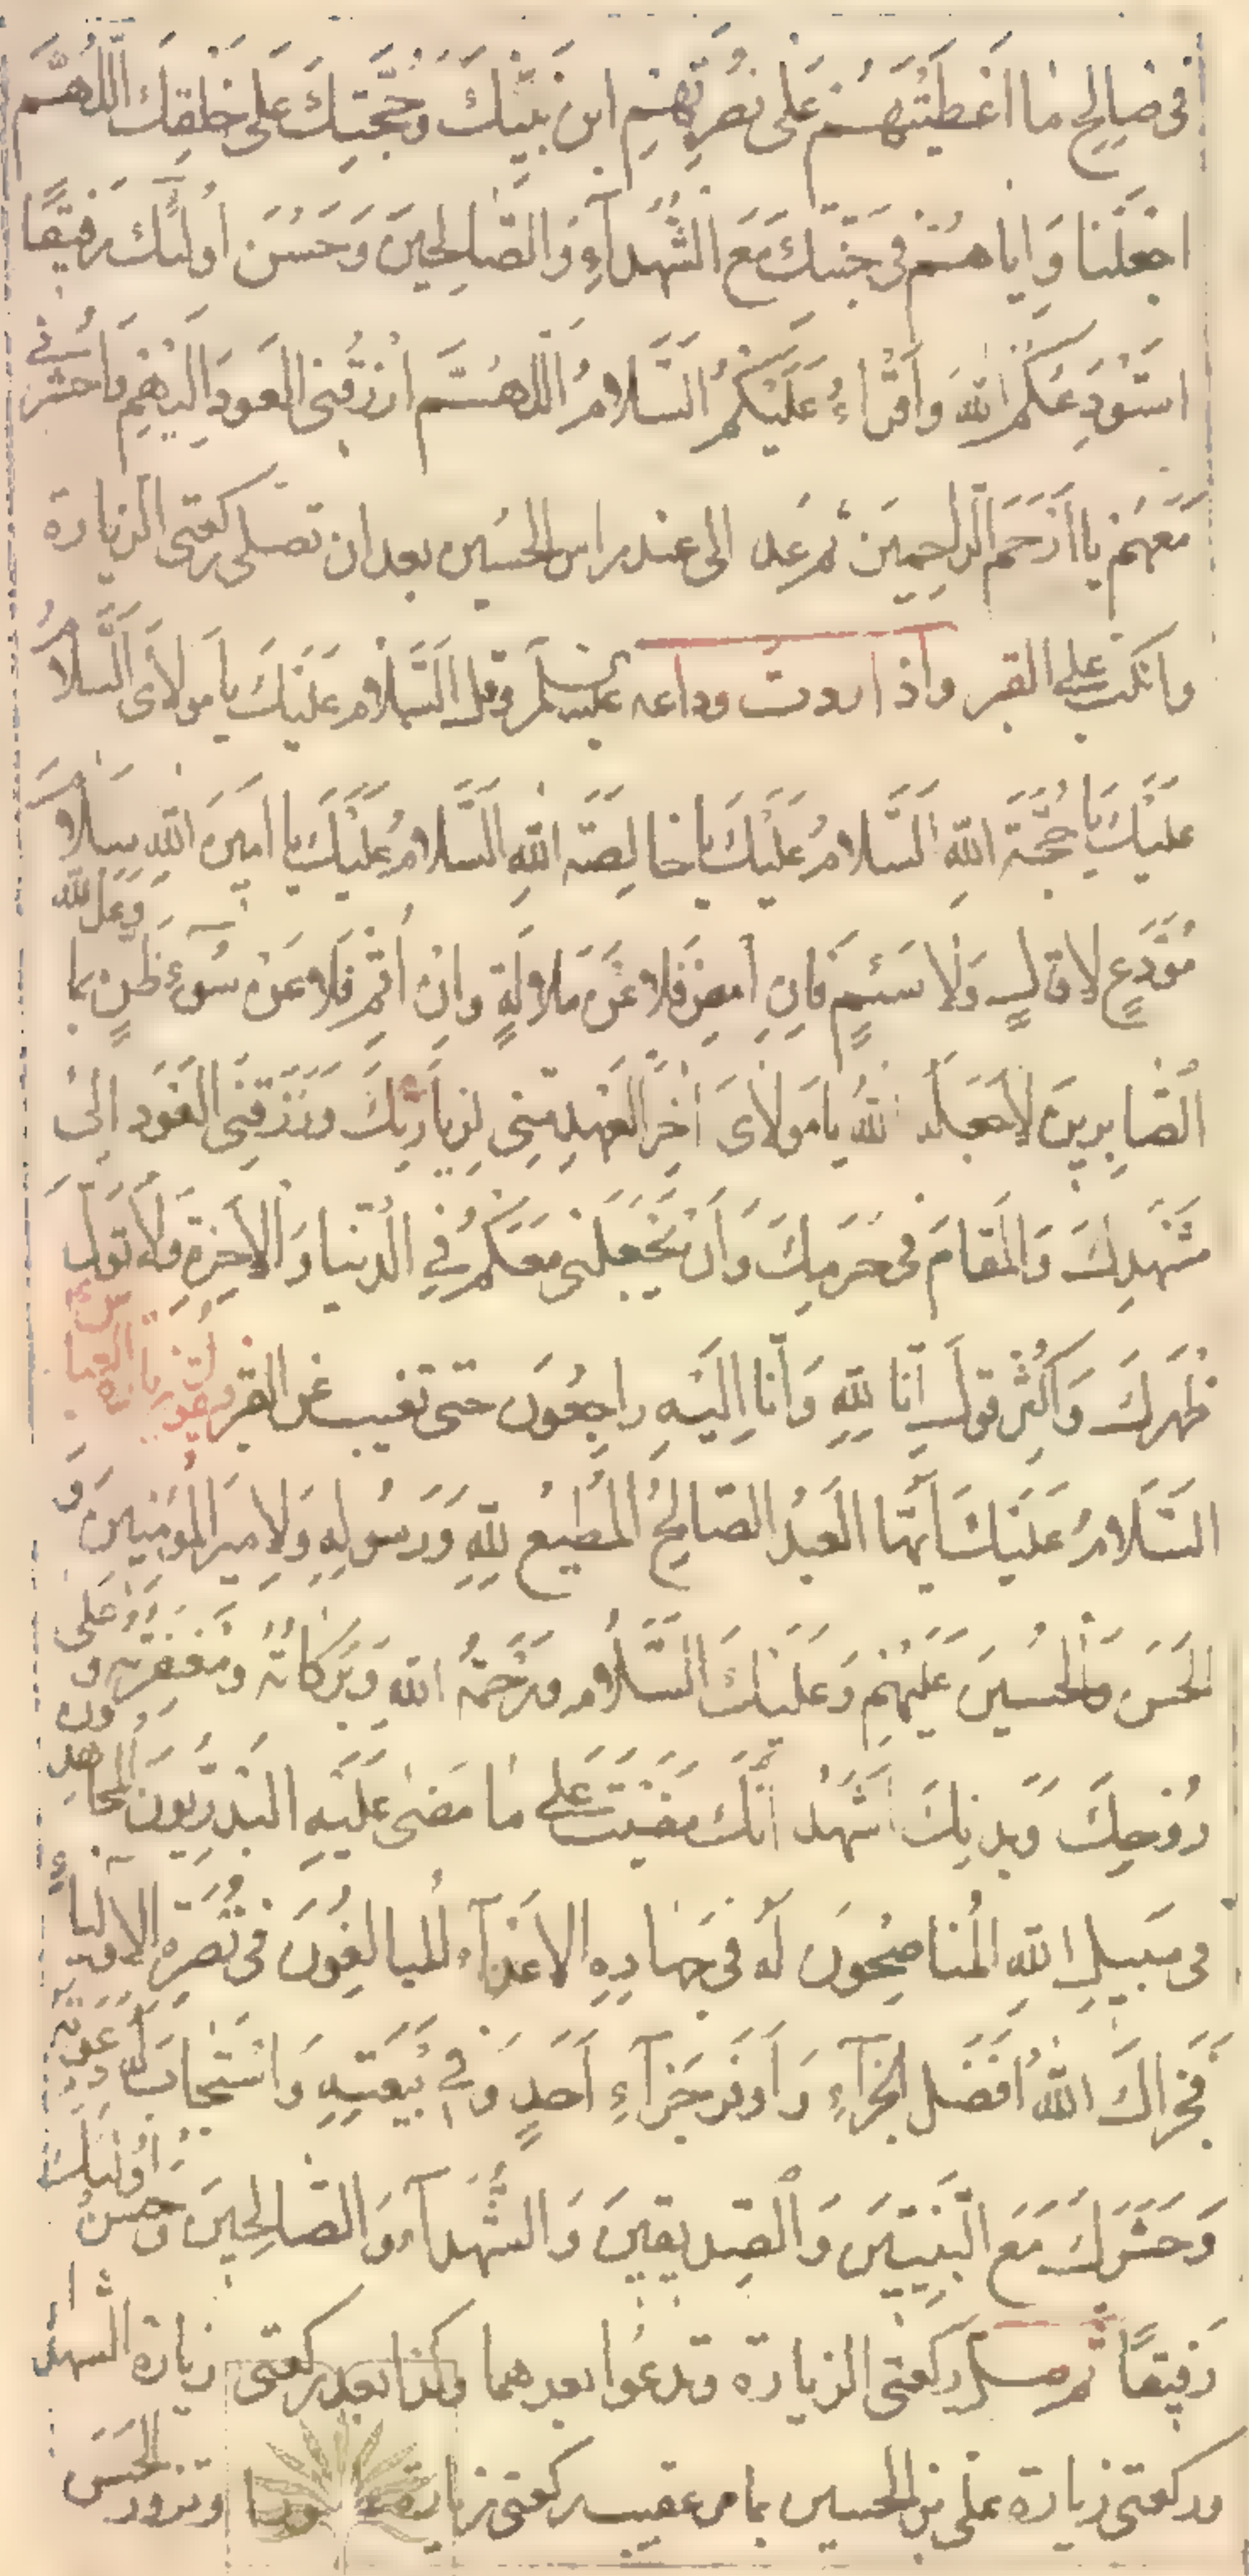 فِى صٰالِحِ مٰا اَعْطَيْتَهُمْ عَلىٰ نُصْرَتِهِمِ ابْنَ نَبِيِّكَ وَحُجَّتِكَ عَلىٰ خَلْقِكَ اَللّٰهُمَّ
اجْعَلْنا وَاِيّاهُمْ فِى جَنَّتِكَ مَعَ الشُّهَدآءِ وَالصّٰالِحِينَ وَحَسُنَ اُولٰئِكَ رَفِيقًا
اَسْتَوْدِعُكُمُ اللهَ وَاَقْرَاءُ عَلَيْكُمُ السَّلامُ اَللّٰهُمَّ ارْزُقْنِى العَودَ اِلَيْهِمِ وَاحْشُرْنِى
مَعَهُمْ يا اَرْحَمَ الرّاحِمِينَ ثم عد الى عند راس الحسين بعد ان تصلى ركعتى الزيارة
وانكب على القبر واذا اردت وداعه فقل السَّلامُ عَلَيْكَ يا مَولاىَ السَّلامُ
عَلَيْكَ يا حُجَّةَ اللهِ السَّلامُ عَلَيْكَ يا خالِصَةَ اللهِ السَّلامُ عَلَيْكَ يا اَمِينَ اللهِ سَلامَ
مُوَدِّعٍ لا قالٍ وَلا سَئِمٍ فَاِنْ اَمْضِ فَلا عَنْ مَلالَةٍ وَاِنْ اُقِمْ فَلا عَنْ سُوءِ ظَنٍّ بِما وَعَدَ اللهُ
الصّابِرينَ لا جَعَلَهُ اللهُ يا مَولاىَ اٰخِرَ العَهْدِ مِنِّى لِزِيارَتِكَ وَرَزَقَنِىَ العَوْدَ اِلىٰ
مَشْهَدِكَ وَالمَقامَ فِى حَرَمِكَ وَاَنْ يَجْعَلَنِى مَعَكُمْ فِى الدُّنْيا وَالاٰخِرَةِ ولا تول
ظهرك واكثر من قول اِنّا لِلّٰهِ وَاِنّا اِلَيْهِ راجِعُونَ حتى تغيب عن القبر وقل فى زيارة العباس
السَّلامُ عَلَيْكَ اَيُّهَا العَبْدُ الصّالِحُ المُطِيعُ لِلّٰهِ وَرَسُولِهِ وَلِاَمِيرِ المُؤمِنِينَ وَ
الحَسَنِ وَالحُسَيْنِ عَلَيْهِمِ وَعَلَيْكَ السَّلامُ وَرَحْمَةُ اللهِ وَبَرَكاتُهُ وَمَغْفِرَتُهُ وَعَلىٰ
رُوحِكَ وَبَدَنِكَ اَشْهَدُ اَنَّكَ مَضَيْتَ عَلىٰ مٰا مَضىٰ عَلَيْهِ البَدْرِيُّونَ المُجاهِدُونَ
فى سَبِيلِ اللهِ المُناصِحُونَ لَهُ فِى جِهادِهِ الاَعْدآءِ المُبالِغُونَ فِى نُصْرَةِ الاَولِيآءِ
فَجَزاكَ اللهُ اَفْضَلَ الجَزآءِ وَاَوفَرَ جَزآءِ اَحَدٍ وَفىٰ بِبَيْعَتِهِ وَاسْتَجابَ لَهُ دَعْوَتَهُ
وَحَشَرَكَ مَعَ النَّبِيّينَ وَالصِّدِيقِينَ وَالشُّهَدآءِ وَالصّالِحِينَ وَحَسُنَ اُولٰئِكَ
رَفِيقًا ثم صل ركعتى الزيارة وتدعوا بعدهما وكذا بعد ركعتى زيارة الشهدا
وركعتى زيارة على بن الحسين بما مر عقيب ركعتى زيارة وتزور الحسن